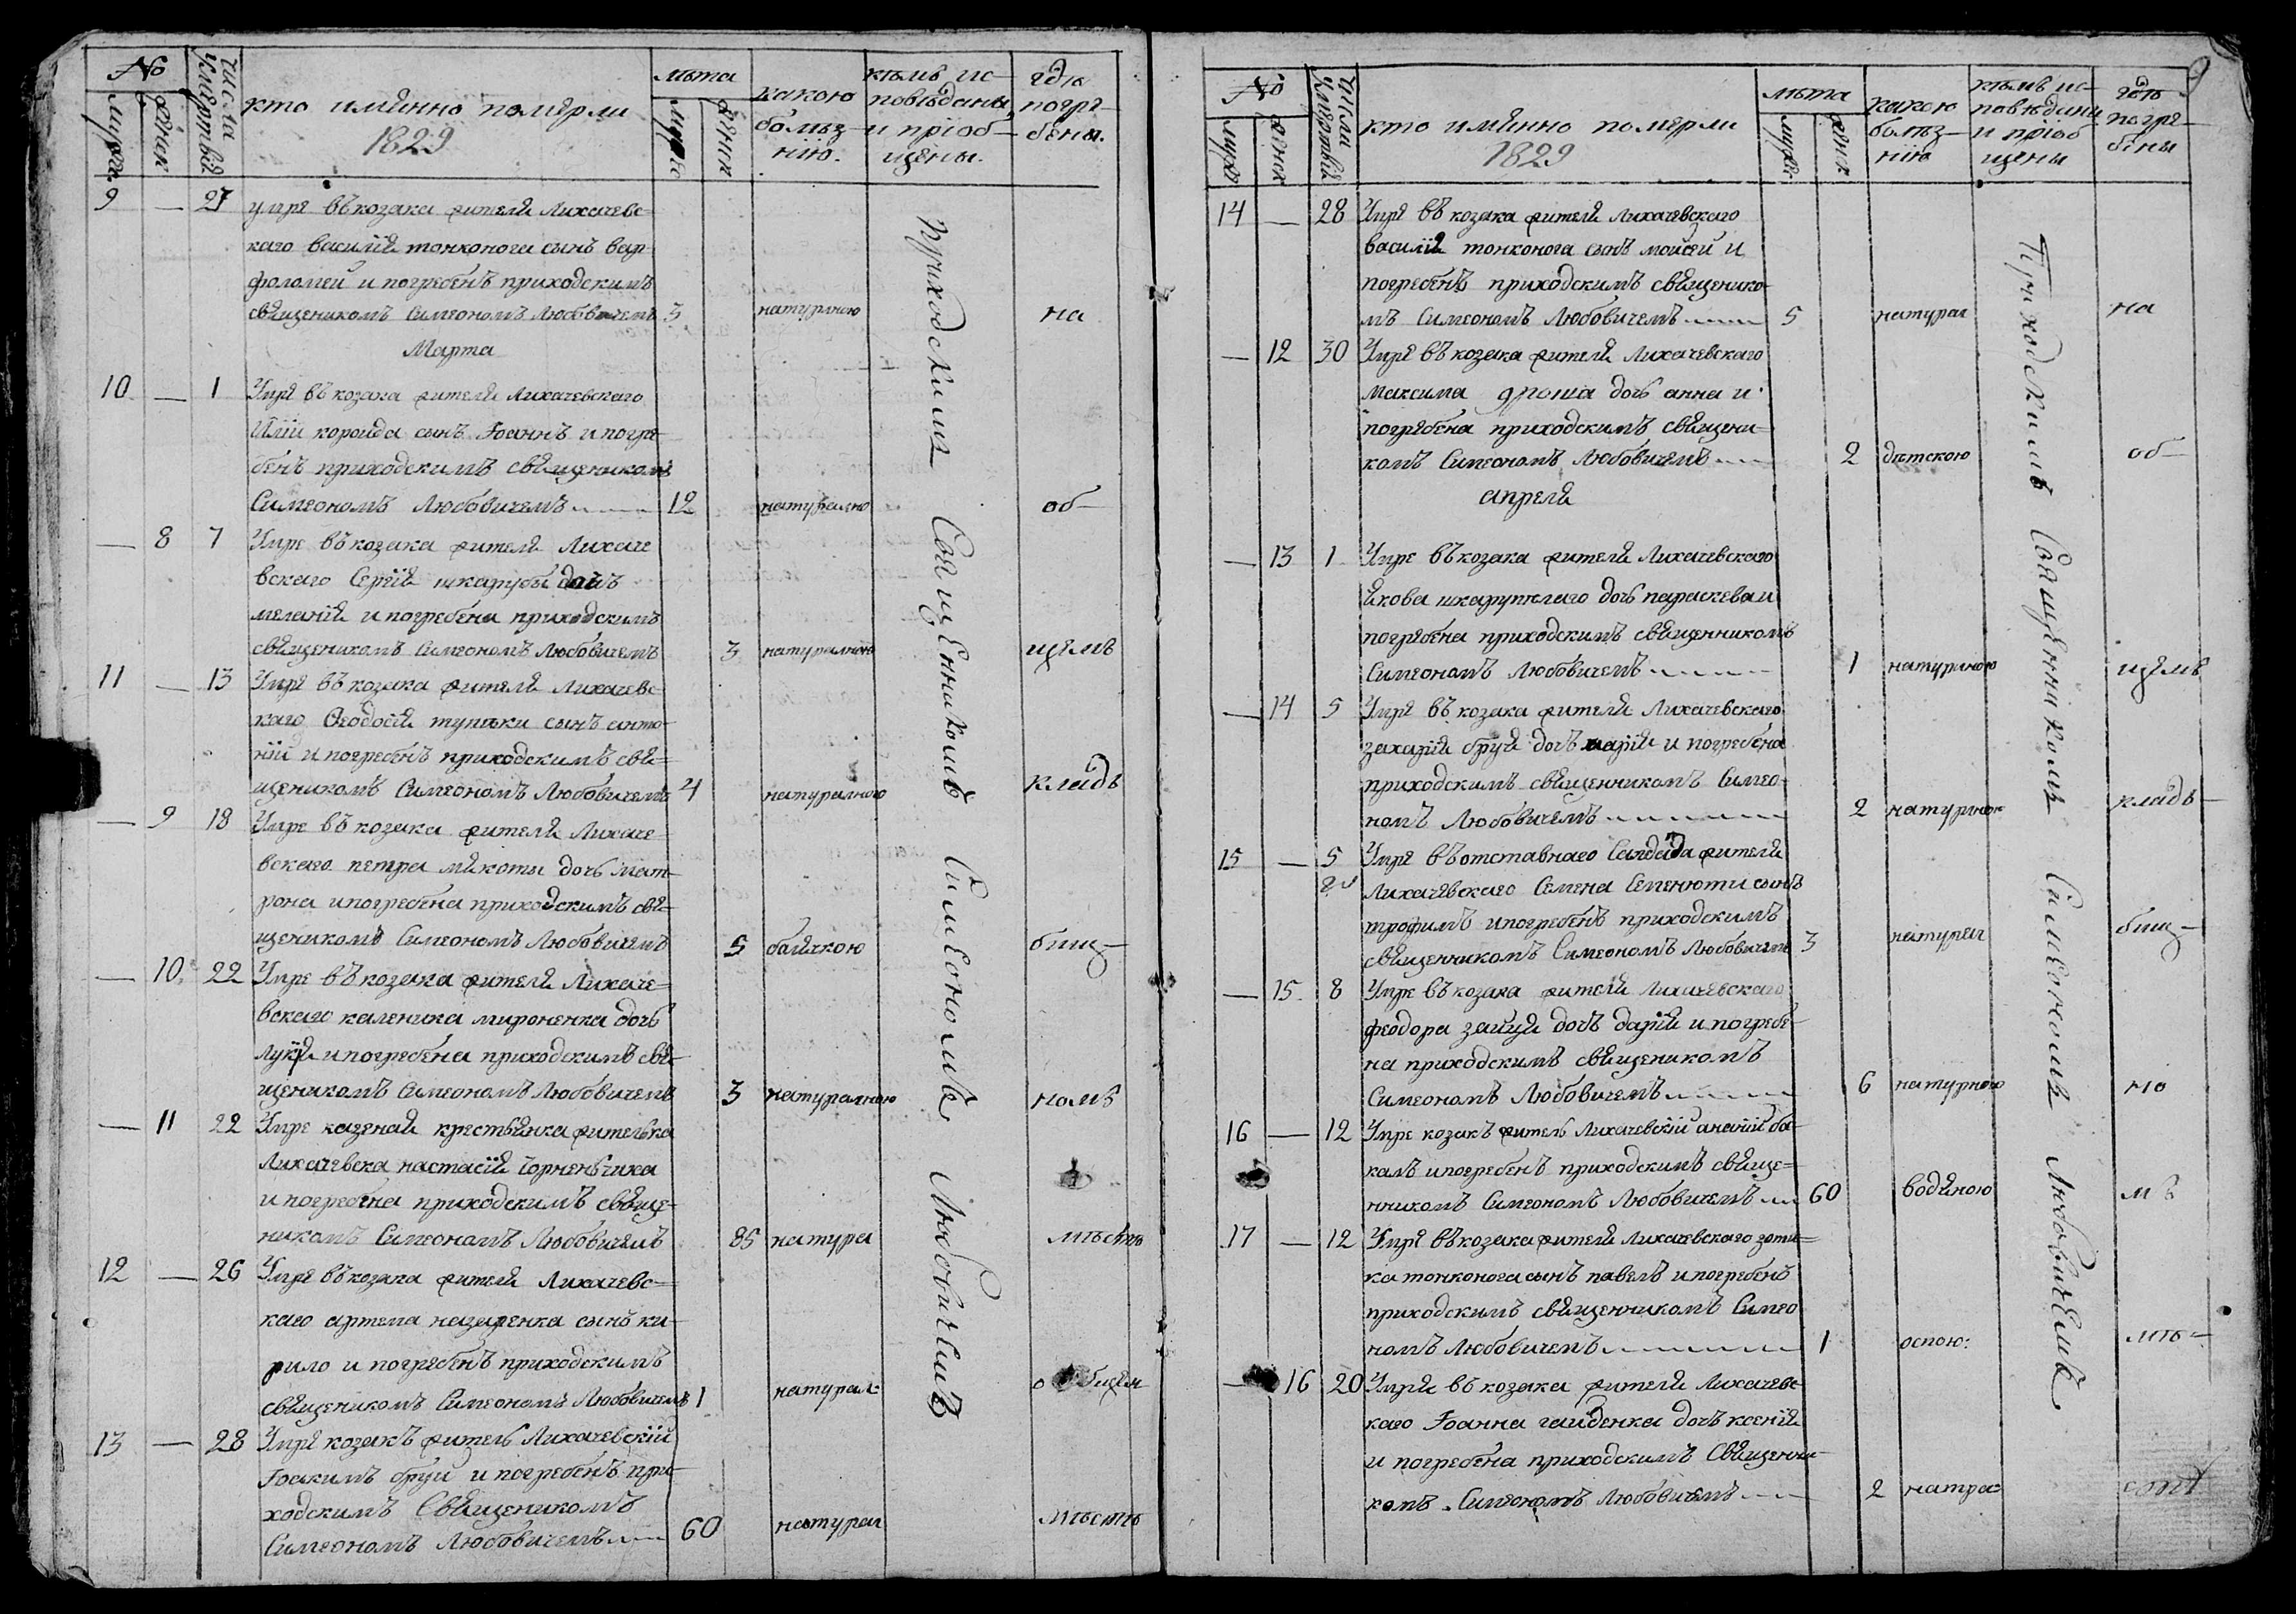 №
мужск
женск
числа смертей
кто имянно померли
1829
лѣта
мужс
женск
какою болѣз-
нію.
кѣмъ ис-
повѣданы
и пріоб-
щены.
гдѣ
погре-
бены.
9 — 27 умре въ козака жителя Лихачевс-
каго василія тонконога сынъ вар-
фоломей и погребенъ приходскимъ
священикомъ Симеономъ Любовичемъ 3 натурною на
Марта
10 — 1 Умре въ козака жителя Лихачевскаго
Иліи короида сынъ Іоаннъ и погре-
бенъ приходскимъ священикомъ
Симеономъ Любовичемъ 12 натурално об-
— 8 7 Умре въ козака жителя Лихаче
вскаго Сергія шкарубы дочъ
меланія и погребена приходскимъ
священикомъ Симеономъ Любовичемъ 3 натуралною щемъ
11 — 13 Умре въ козака жителя Лихачевс-
каго Феодосія тупики сынъ анто-
ній и погребенъ приходскимъ свя-
щеникомъ Симеономъ Любовичемъ 4 натуралного кладь
— 9 18 Умре въ козака жителя Лихаче-
вскаго петра мякоты дочь мат-
рона и погребена приходскимъ свя-
щеникомъ Симеономъ Любовичемъ 5 бищ-
— 10 22 Умре въ козака жителя Лихаче-
вскаго каленика мироненка дочь
лукія и погребена приходскимъ свя-
щеникомъ Симеономъ Любовичемъ 3 натуралною номъ
— 11 22 Умре казеная крестьянка жителка
Лихачевска настасія
и погребена приходскимъ свяще-
никомъ Симеономъ Любовичемъ 85 натура мѣстѣ
12 — 26 Умре въ козака жителя Лихачевс-
каго артема назаренка сынъ ки-
рило и погребенъ приходскимъ
священикомъ Симеономъ Любовичемъ 1 натурал:
13 — 28 Умре козакъ житель Лихачевскій
Іоакимъ бруй и погребенъ при-
ходскимъ Священикомъ
Симеономъ Любовичемъ 60 натурал мѣстѣ
Приходскимъ Священникомъ Симеономъ Любовичемъ
9
№
мужс
женск
числа смертей
кто имянно померли
1829
лѣта
мужс
женск
какою
болѣз-
нію
кѣмъ ис-
повѣдани
и пріоб
щены
гдѣ
погре-
бены
14 — 28 Умре въ козака жителя Лихачевскаго
василія тонконога сынъ мойсей и
погребенъ приходскимъ священико-
мъ Симеономъ Любовичемъ 5 натурал на
— 12 30 Умре въ козака жителя Лихачевскаго
Максима дроша дочь анна и
погребена приходскимъ священи-
комъ Симеономъ Любовичемъ 2 дѣтскою об-
апреля
— 13 1 Умре въ козака жителя Лихачевскаго
Якова шкарупклаго дочь параскева и
погребена приходскимъ священникомъ
Симеономъ Любовичемъ 1 натурною щемъ
— 14 5 Умре въ козака жителя Лихачевскаго
захарія бруя дочъ марія и погребена
приходскимъ священникомъ Симео-
номъ Любовичемъ 2 натурною кладь-
15 — 5 Умре въ отставнаго Салдата жителя
Лихачевскаго Семена Семенюти сынъ
трофимъ и погребенъ приходскимъ
священникомъ Симеономъ Любовичемъ 3 натурал бищ-
— 15 8 Умре въ козака жителя Лихачевскаго
феодора зайця дочъ дарія и погребе-
на приходскимъ священикомъ
Симеономъ Любовичемъ 6 натурною но
16 — 12 Умре козакъ житель Лихачевскій ананій ба-
калъ и погребенъ приходскимъ свяще-
нникомъ Симеономъ Любовичемъ 60 водяною мъ
17 — 12 Умре въ козака жителя Лихачевскаго зоти-
ка тонконога сынъ павелъ и погребенъ
приходскимъ священникомъ Симео
номъ Любовичемъ 1 оспою: мѣ-
— 16 20 Умре въ козака жителя Лихачевс-
каго Іоанна гайденка дочъ ксенія
и погребена приходскимъ Священни-
комъ Симеономъ Любовичемъ 2 натрал
Приходскимъ Священникомъ Симеономъ Любовичемъ